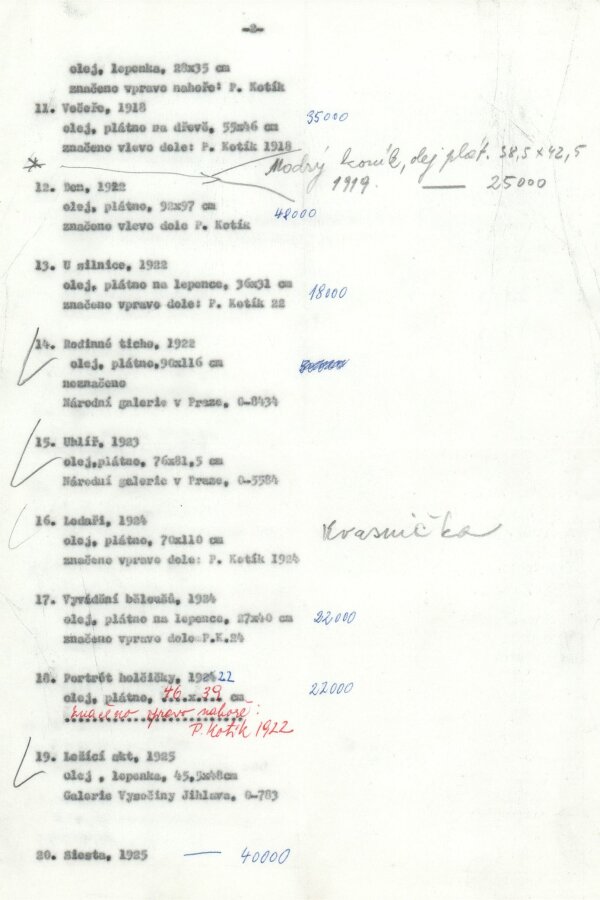 -2-
olej, lepenka, 28x35 cm
značeno vpravo nahoře: P. Kotík
11. Večeře, 1918
35000
olej, plátno na dřevě, 55x46 cm
značeno vlevo dole: P. Kotík 1918
Modrý koník, olej plát. 38,5 x 42,5
1919. — 25000
12. Den, 1922
olej, plátno, 98x97 cm
48000
značeno vlevo dole P. Kotík
13. U silnice, 1922
olej, plátno na lepence, 36x31 cm
18000
značeno vpravo dole: P. Kotík 22
14. Rodinné ticho, 1922
olej, plátno,90x116 cm
neznačeno
Národní galerie v Praze, O-8434
15. Uhlíř, 1923
olej,plátno, 76x81,5 cm
Národní galerie v Praze, O-5584
16. Ledaři, 1924
Kvasnička
olej, plátno, 70x110 cm
značeno vpravo dole: P. Kotík 1924
17. Vyvádění běloušů, 1924
olej, plátno na lepence, 27x40 cm
22000
značeno vpravo dole P.K.24
18. Portrét holčičky, 192422
22000
olej, plátno, 46 x 39 cm
značeno vpravo nahoře:
P. Kotík 1922
19. Ležící akt, 1925
olej , lepenka, 45,9x48cm
Galerie Vysočiny Jihlava, O-783
20. Siesta, 1925 — 40000